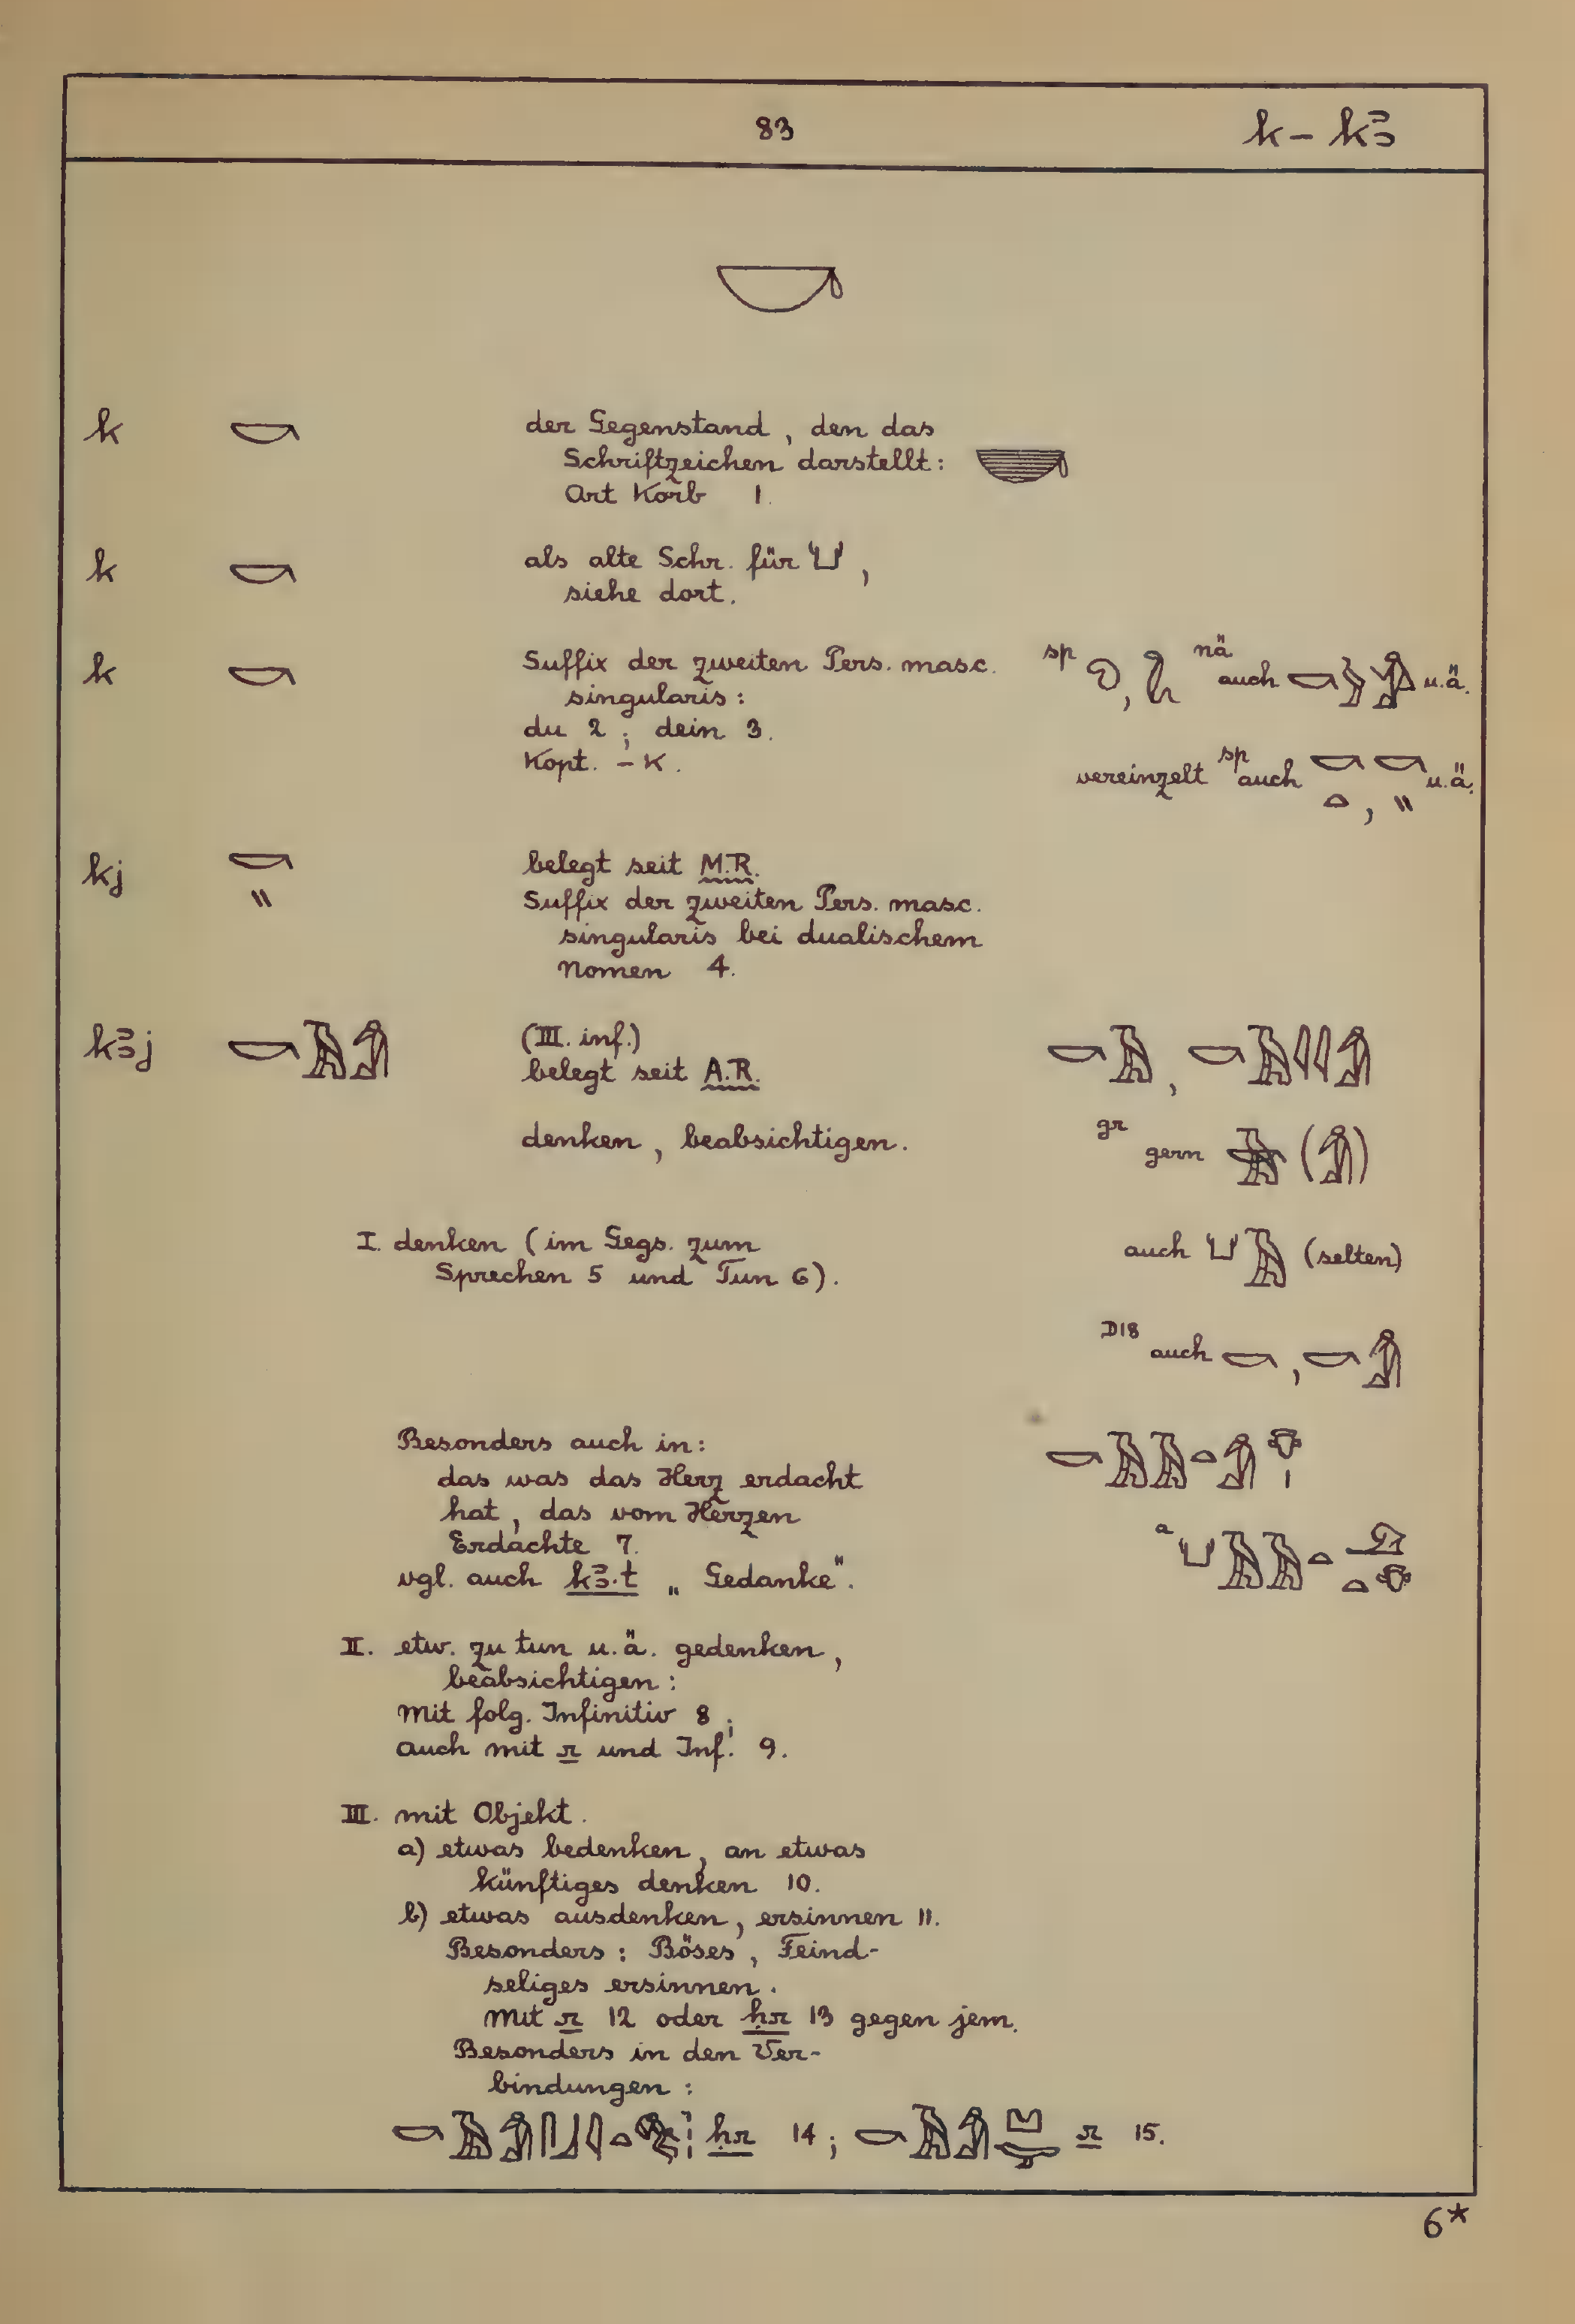 83
k - kꜣ
𓎡
k 𓎡 der Gegenstand, den das
Schriftzeichen darstellt:
Art Korb 1.
k 𓎡 als alte Schr. für 𓂓,
siehe dort.
k 𓎡 Suffix der zweiten Pers. masc.
singularis:
du 2; dein 3.
Kopt. – K.
sp nä auch u.ä.
vereinzelt sp auch u.ä.
kj 𓎡𓏭 belegt seit M.R.
Suffix der zweiten Pers. masc.
singularis bei dualischem
Nomen 4.
kꜣj 𓎡𓄿𓀁 (III. inf.)
belegt seit A.R.
𓎡𓄿, 𓎡𓄿𓇋𓇋𓀁
denken, beabsichtigen.
gr gern (𓀁)
I. denken (im Gegs. zum
Sprechen 5 und Tun 6).
auch 𓂓𓄿 (selten)
D18 auch 𓎡, 𓎡𓀁
Besonders auch in:
das was das Herz erdacht
hat, das vom Herzen
Erdachte 7.
vgl. auch kꜣ.t „Gedanke".
𓎡𓄿𓄿𓏏𓀁𓄣𓏤
a
II. etw. zu tun u.ä. gedenken,
beabsichtigen:
Mit folg. Infinitiv 8;
auch mit r und Inf. 9.
III. mit Objekt.
a) etwas bedenken, an etwas
künftiges denken 10.
b) etwas ausdenken, ersinnen 11.
Besonders: Böses, Feind-
seliges ersinnen.
Mit r 12 oder ḥr 13 gegen jem.
Besonders in den Ver-
bindungen:
ḥr 14; r 15.
6*